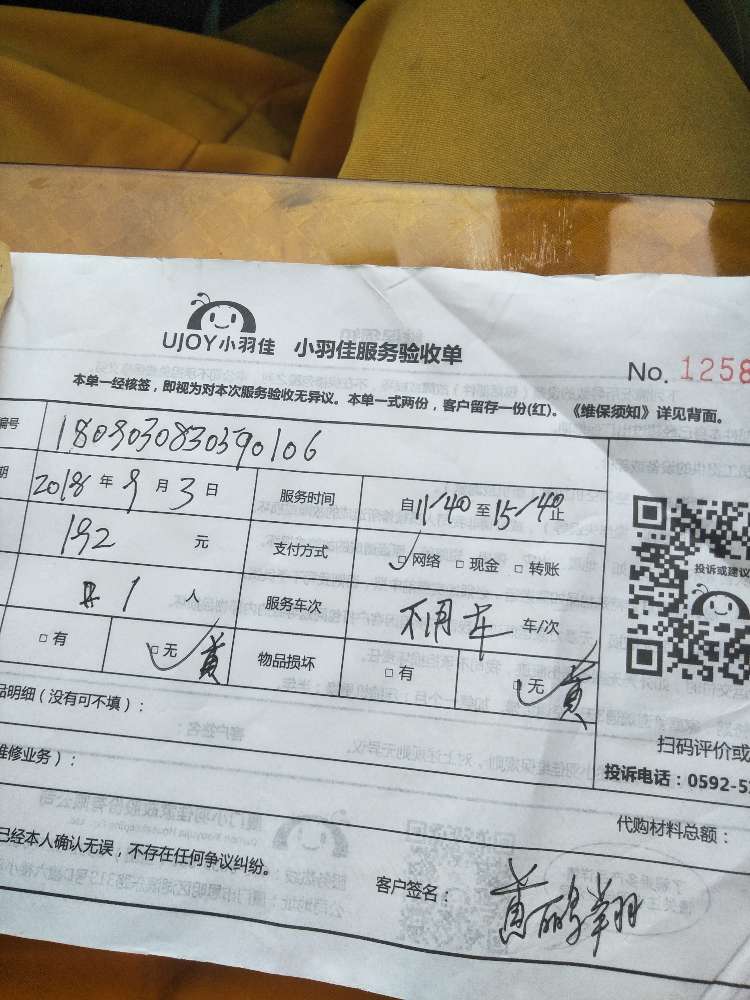 UJOY小羽佳 小羽佳服务验收单
No. 1258
本单一经核签，即视为对本次服务验收无异议。本单一式两份，客户留存一份(红)。《维保须知》详见背面。
编号 1809030830590106
期 2018 年 9 月 3 日 服务时间 自11/40至15/40止
192 元 支付方式 网络 现金 转账
投诉或建议
1 人 服务车次 不用车 车/次
有 无 黄 物品损坏 有 无 黄
品明细（没有可不填）：
扫码评价或
投诉电话：0592-5
维修业务）：
代购材料总额：
已经本人确认无误，不存在任何争议纠纷。
客户签名： 黄鹏翔